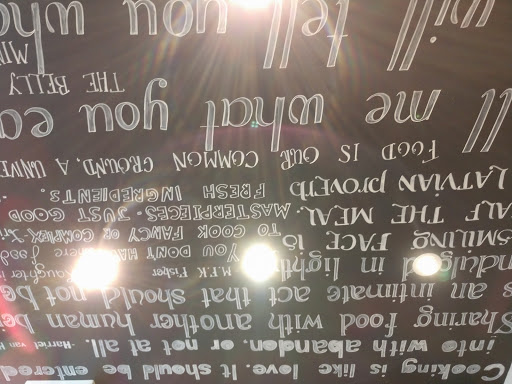 Cooking is like love. It should be entered
into with abandon, or not at all. -Harriet
Sharing food with another human be
is an intimate act that should not be
indulged in lightly
M.F.K. Fisher
SMILING FACE IS
ALF THE MEAL
LATVIAN PROVERB
YOU DON'T HAVE
TO COOK FANCY OR COMPLEX
MASTERPIECES - JUST GOOD
FRESH INGREDIENTS.
FOOD IS OUR COMMON GROUND, A UNIVE
ll me what you ea
THE BELLY
will tell you who